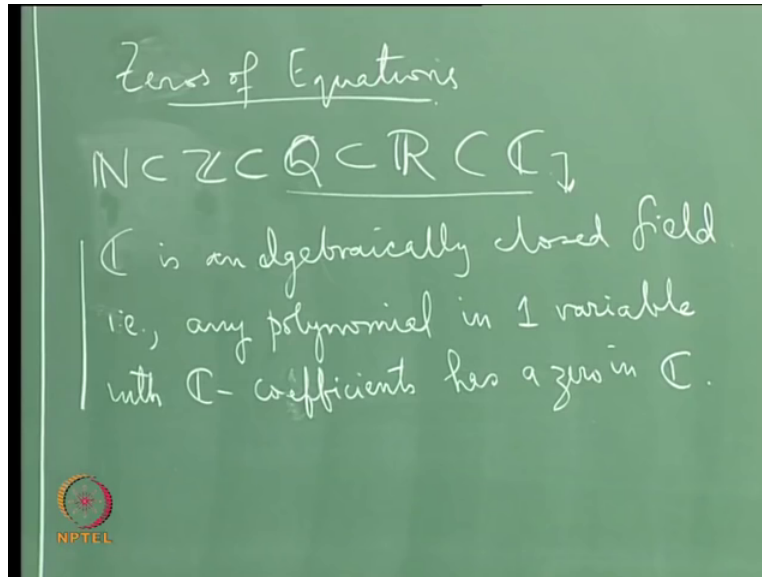 Zeros of Equations
ℕ ⊂ ℤ ⊂ ℚ ⊂ ℝ ⊂ ℂ
ℂ is an algebraically closed field
i.e., any polynomial in 1 variable
with ℂ- coefficients has a zero in ℂ.
NPTEL